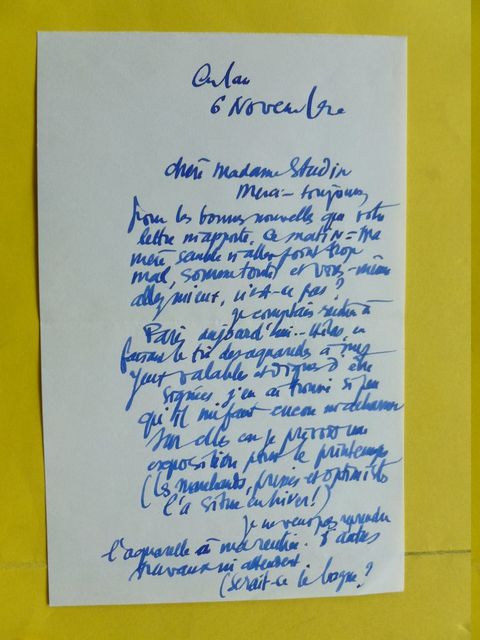 6 Novembre
chère Madame Studin
Merci - toujours
pour les bonnes nouvelles que votre
lettre m'apporte. Ce matin - Ma
mère semble n'aller point trop
mal, somme toute et vous-même
allez mieux, n'est-ce pas ?
je comptais rentrer à
Paris aujourd'hui.. Hélas, en
faisant le tri des aquarelles à mes
yeux valables et dignes d'être
signées, j'en ai trouvé si peu
qu'il me faut encore m'acharner
sur elles car je prévois une
exposition pour le printemps
(les marchands, pressés et optimistes
l'a situe en hiver !)
je ne veux pas reprendre
l'aquarelle à ma rentrée. D'autres
travaux m'attendent.
(serait-ce le bagne ?